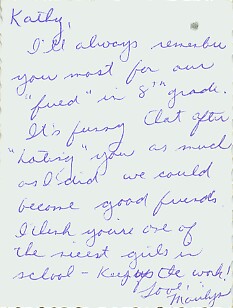 Kathy,
I'll always remember
you most for our
"fued" in 8th grade.
It's funny that after
"hating" you as much
as I did we could
become good friends
I think you're one of
the nicest girls in
school - Keep up the work!
Love,
Marilyn